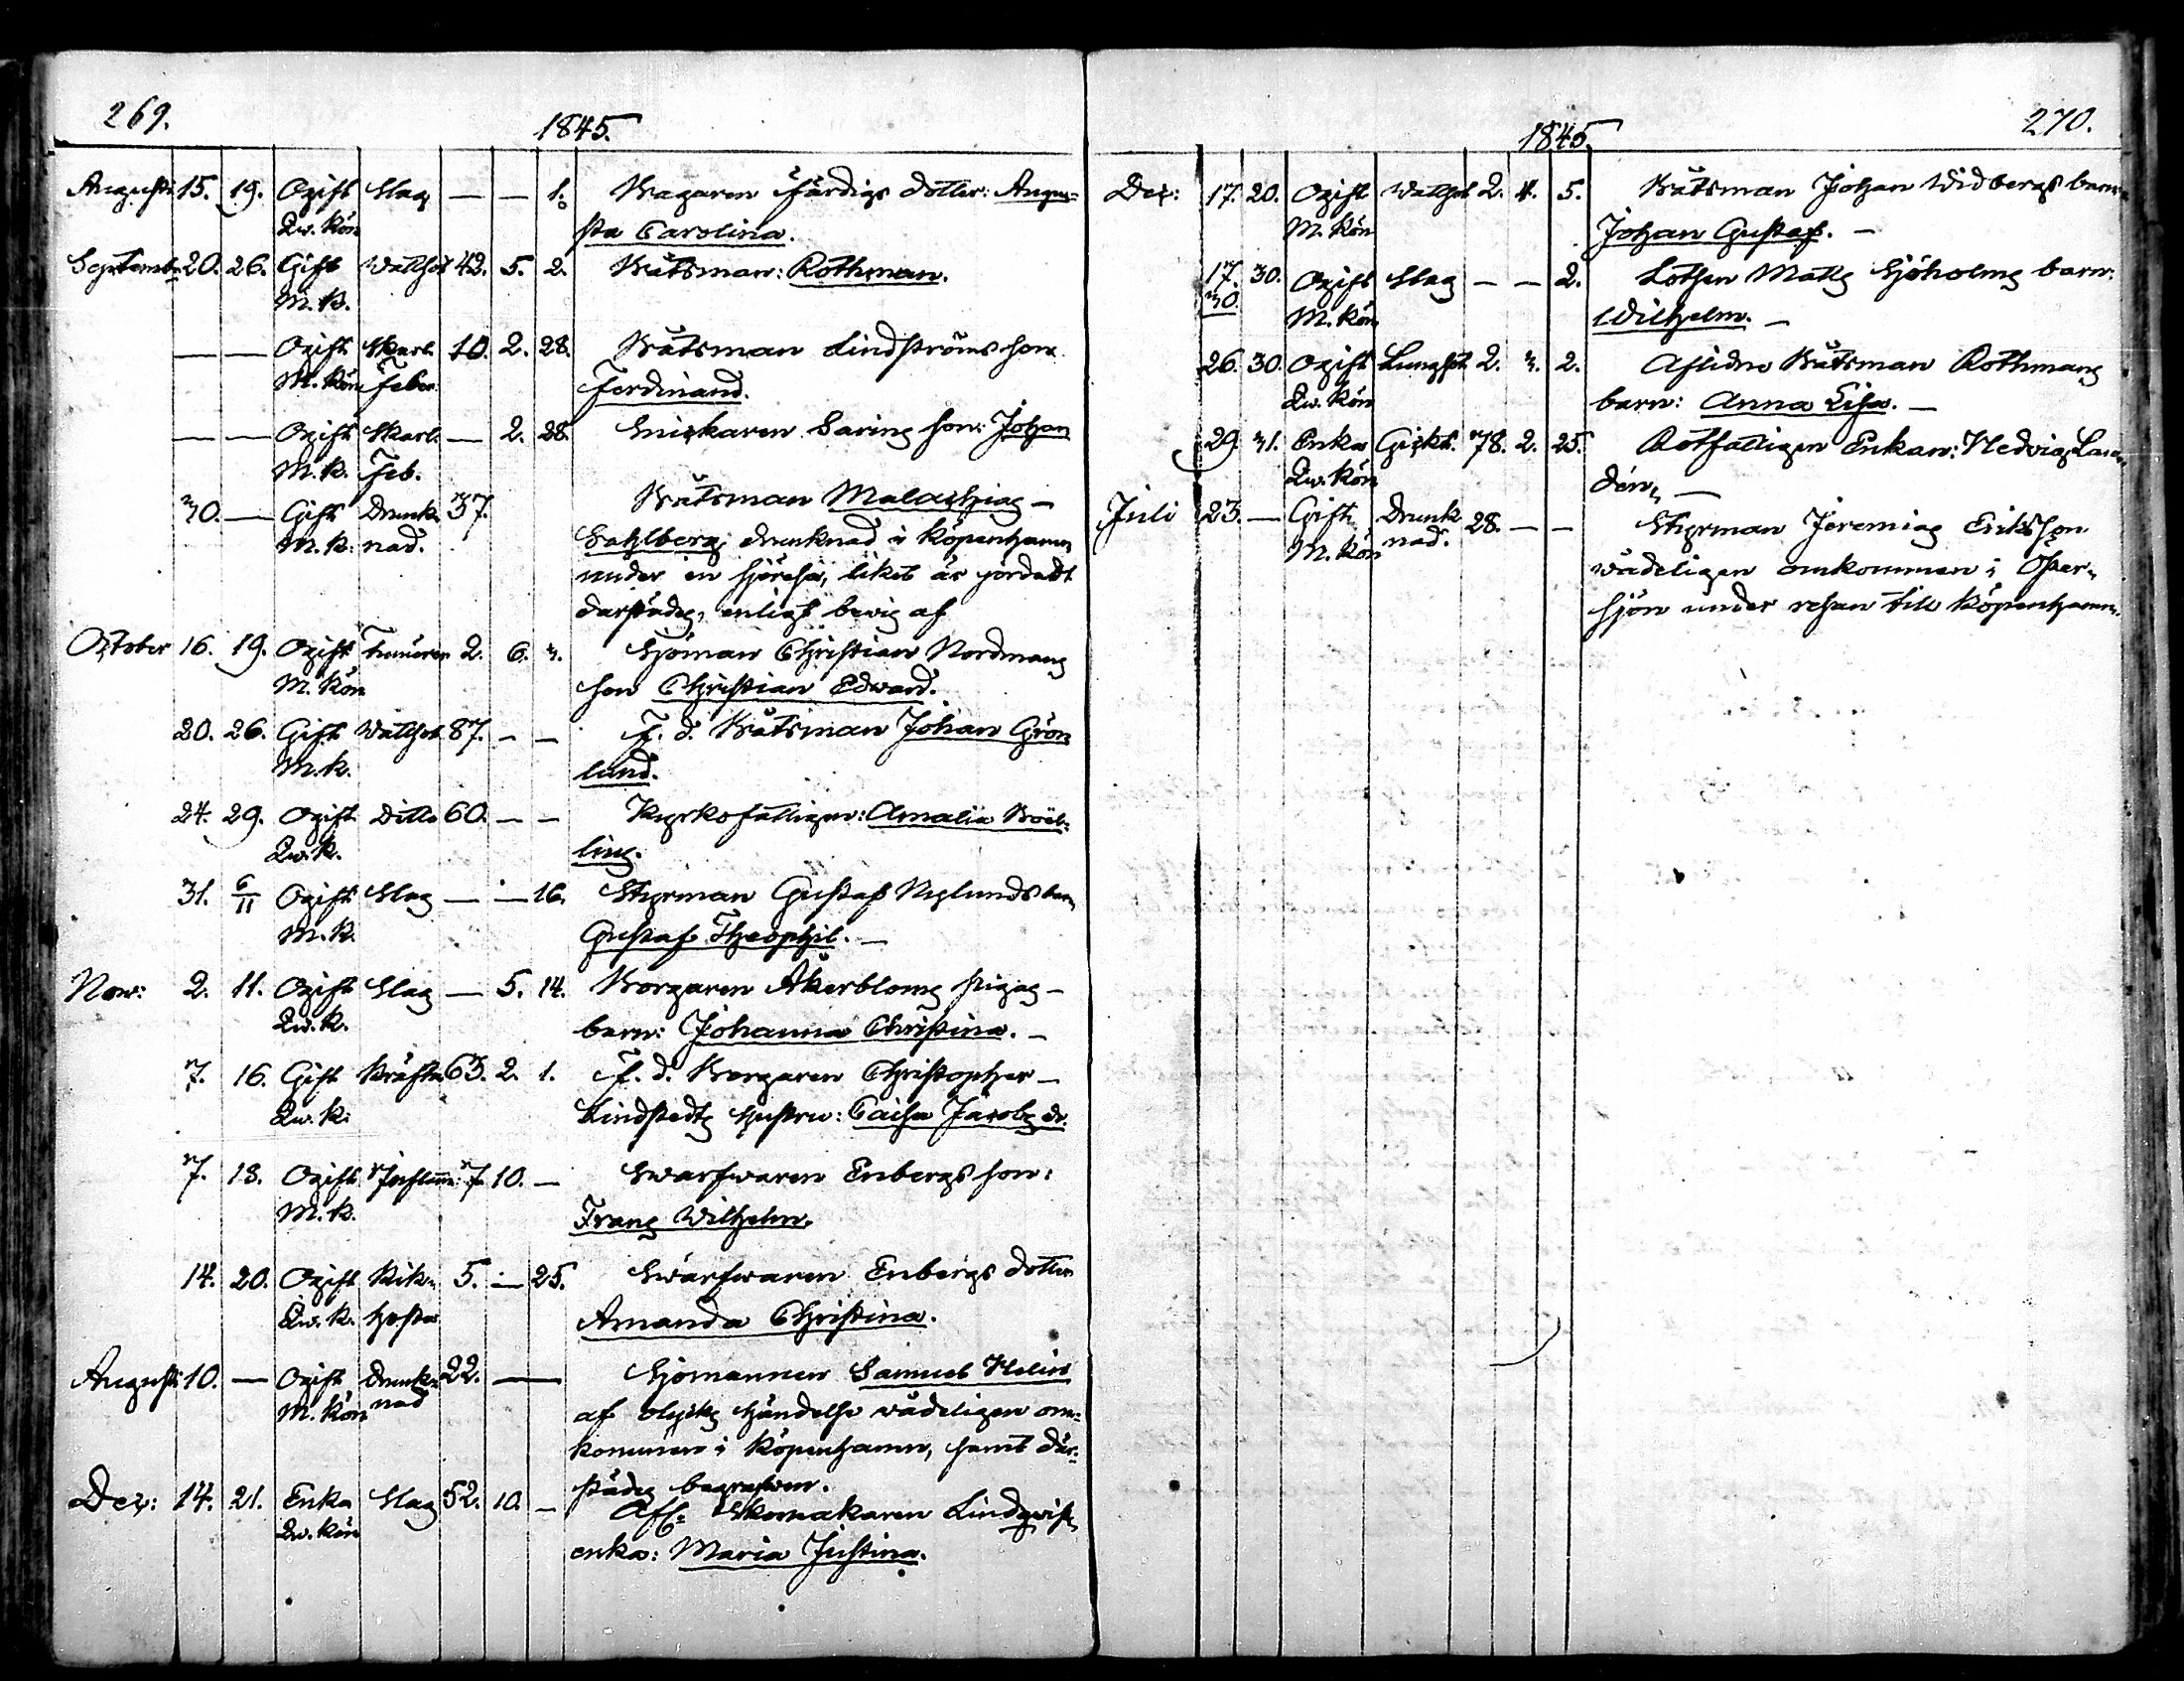 269.
1845.
Augusti 15. 19. Ogift Slag — — 1. Bagaren Färdigs dotter: Augu-
Qv. Kön sta Carolina.
Septemb. 20. 26. Gift Wattsot 42. 5. 2. Båtsman: Rothman.
M. K.
— — Ogift Skarl. 10. 2. 28. Båtsman Lindströms son
M. Kön Feber. Ferdinand.
— — Ogift Skarl. — 2. 28. Snickaren Sarins son: Johan
M. K. Feb.
30. — Gift Drunk- 37. Båtsman Malachias —
M. K: nad. Sahlberg, drunknad i Köpenhamn
under en sjöresa, liket är jordadt
därstädes, enligt bevis af
October 16. 19. Ogift 2. 6. 3. Sjöman Christian Nordmans
M. Kön son Christian Edward.
20. 26. Gift Wattsot 87. — — F. d. Båtsman Johan Grön
M. K. lund.
24. 29. Ogift Ditto 60. — — Kyrkofattigen: Amalia
Qv. K. ling.
31. 6/11 Ogift Slag — — 16. Styrman Gustaf Nylunds barn
M. K. Gustaf Theophil. —
Nov: 2. 11. Ogift Slag — 5. 14. Borgaren Åkerbloms pigas —
Qv. K. barn: Johanna Christina. —
7. 16. Gift Kräfta 63. 2. 1. F. d. Borgaren Christopher —
Qv. K: Lindstedts hustru: Caisa Jacobs dr.
7. 13. Ogift 7. 10. — Swarfwaren Enbergs son:
M. K. Frans Wilhelm.
14. 20. Ogift Kik- 5. — 25. Swarfwaren Enbergs dotter
Qv. K. hosta Amanda Christina.
Augusti 10. — Ogift Drunk- 22. — Sjömannen Samuel Helin
M. Kön nad af olycks händelse wådeligen om-
kommen i Köpenhamn, samt där-
städes begrafwen.
Dec: 14. 21. Enka Slag 52. 10. — Afl. Skomakaren Lindqvists
Qv. Kön enka: Maria Justina.
270.
1845.
Dec: 17. 20. Ogift Wattsot 2. 4. 5. Båtsman Johan Widbergs barn
M. Kön Johan Gustaf. —
17. 30. Ogift Slag — — 2. Lotsen Matts Sjöholms barn:
30. M. Kön Wilhelm. —
26. 30. Ogift Lungsot 2. 3. 2. Aflidne Båtsman Rothmans
Qv. Kön barn: Anna Lisa. —
29. 31. Enka Gickt. 78. 2. 25. Rotfattigen Enkan: Hedvig
Qv. Kön dén, —
Juli 23. — Gift Drunk 28. — — Styrman Jeremias Eriksson
M. Kön nad. wådeligen omkommen i Öster-
sjön under resan till Köpenhamn.